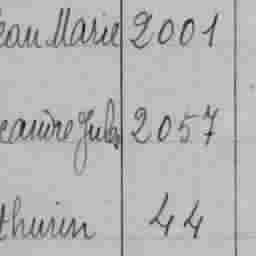 ean Marie 2001
eandre Jules 2057
thurin 44